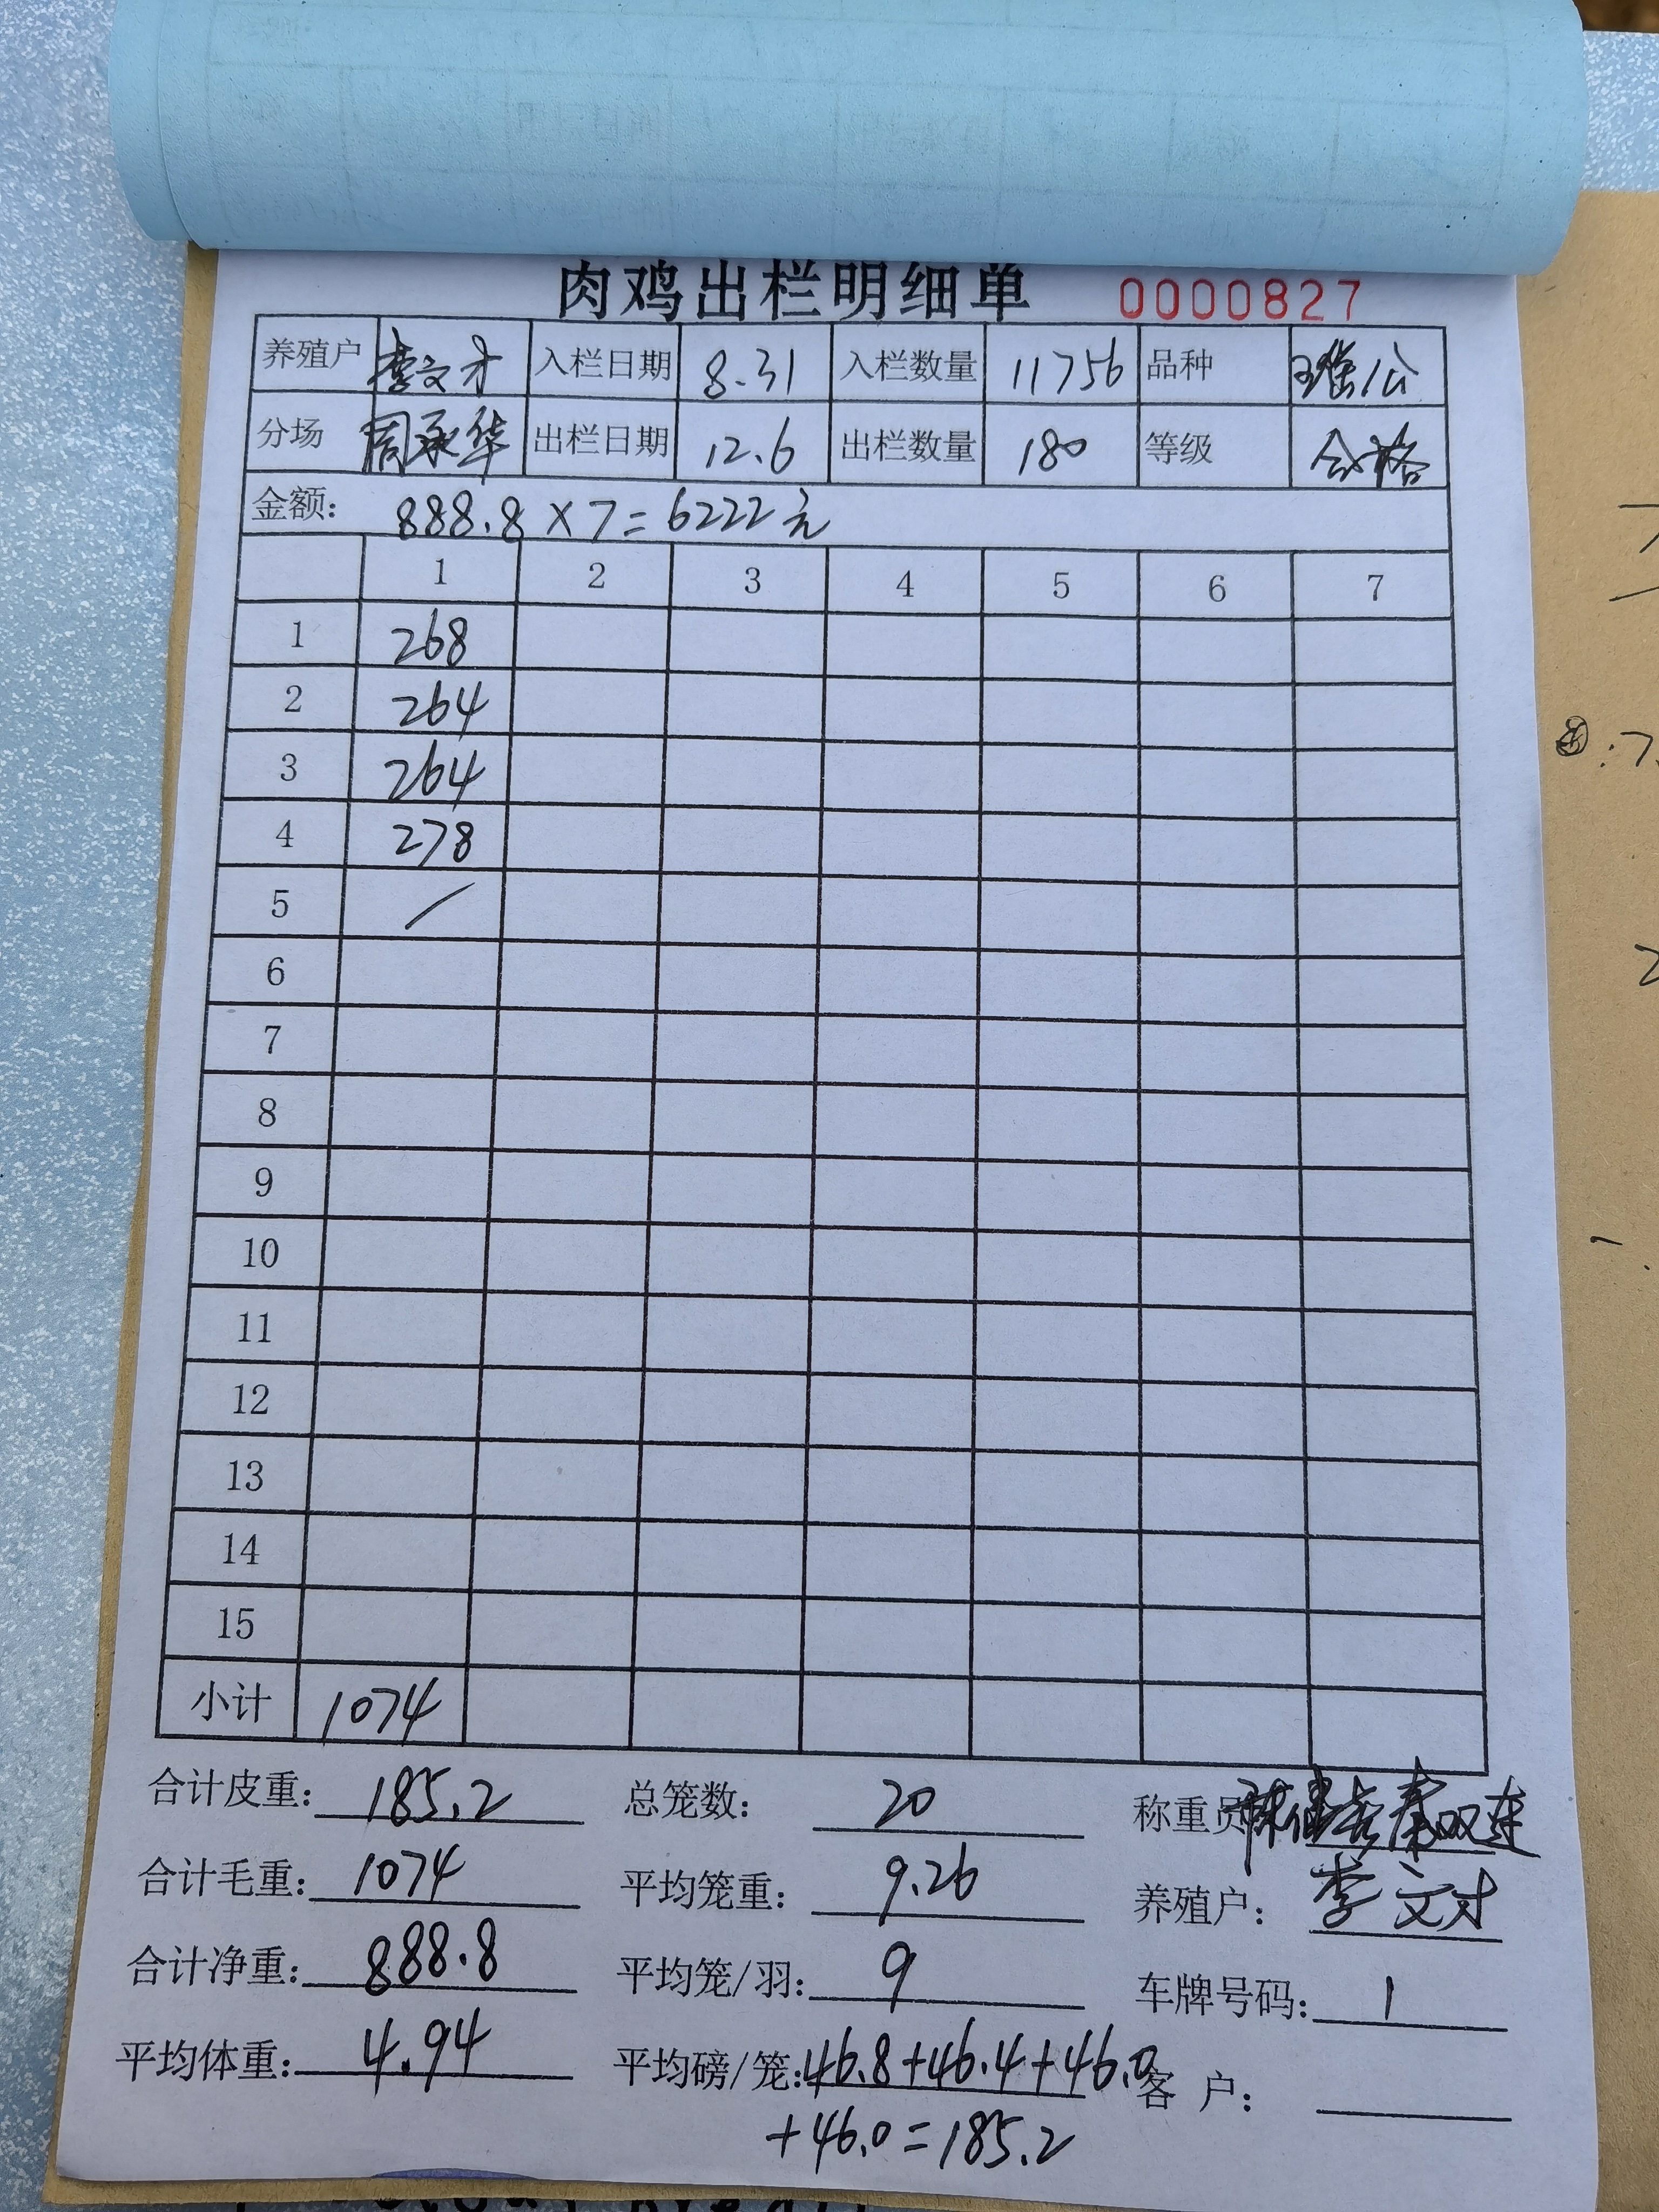 肉鸡出栏明细单 0000827
养殖户 李文才 入栏日期 8.31 入栏数量 11756 品种 公
分场 周承华 出栏日期 12.6 出栏数量 180 等级 合格
金额: 888.8×7=6222元
1 2 3 4 5 6 7
1 268
2 264
3 264
4 278
5 /
6
7
8
9
10
11
12
13
14
15
小计 1074
合计皮重: 185.2 总笼数: 20 称重员 秦双连
合计毛重: 1074 平均笼重: 9.26 养殖户: 李文才
合计净重: 888.8 平均笼/羽: 9 车牌号码: 1
平均体重: 4.94 平均磅/笼: 46.8+46.4+46.0 客户:
+46.0=185.2